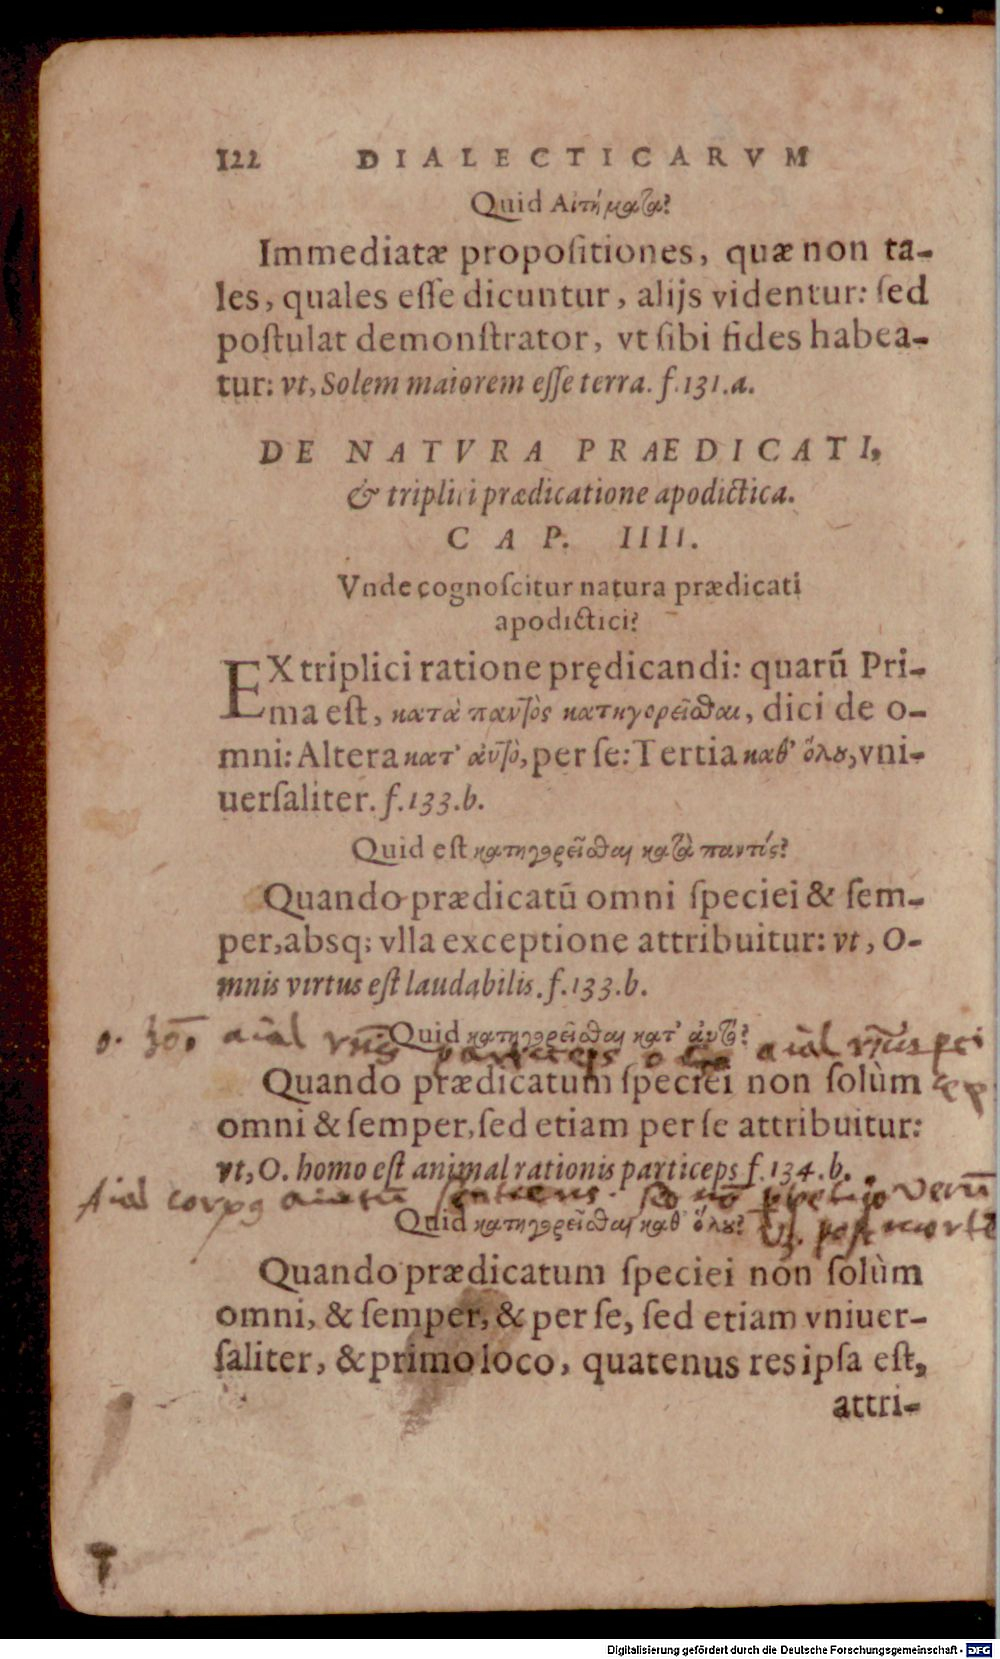 122 DIALECTICARVM
Quid Αιτήματα?
Immediatæ propoſitiones, quæ non ta-
les, quales eſſe dicuntur, alijs videntur: ſed
poſtulat demonſtrator, vt ſibi fides habea-
tur: vt, Solem maiorem eſſe terra. f.131.a.
DE NATVRA PRÆDICATI,
& triplici prædicatione apodictica.
CAP. IIII.
Vnde cognoſcitur natura prædicati
apodictici?
EX triplici ratione prędicandi: quarū Pri-
ma eſt, κατὰ παντὸς κατηγορεῖσθαι, dici de o-
mni: Altera κατ' αὐτὸ, per ſe: Tertia καθ' ὅλου, vni-
uerſaliter. f.133.b.
Quid eſt κατηγορεῖσθαι κατὰ παντός?
Quando prædicatū omni ſpeciei & ſem-
per, absq; vlla exceptione attribuitur: vt, O-
mnis virtus eſt laudabilis. f.133.b.
Quid κατηγορεῖσθαι κατ' αὐτὸ?
Quando prædicatum ſpeciei non ſolùm
omni & ſemper, ſed etiam per ſe attribuitur:
vt, O. homo eſt animal rationis particeps f.134.b.
Quid κατηγορεῖσθαι καθ' ὅλου?
Quando prædicatum ſpeciei non ſolùm
omni, & ſemper, & per ſe, ſed etiam vniuer-
ſaliter, & primo loco, quatenus res ipſa eſt,
attri-
Digitalisierung gefördert durch die Deutsche Forschungsgemeinschaft - DFG